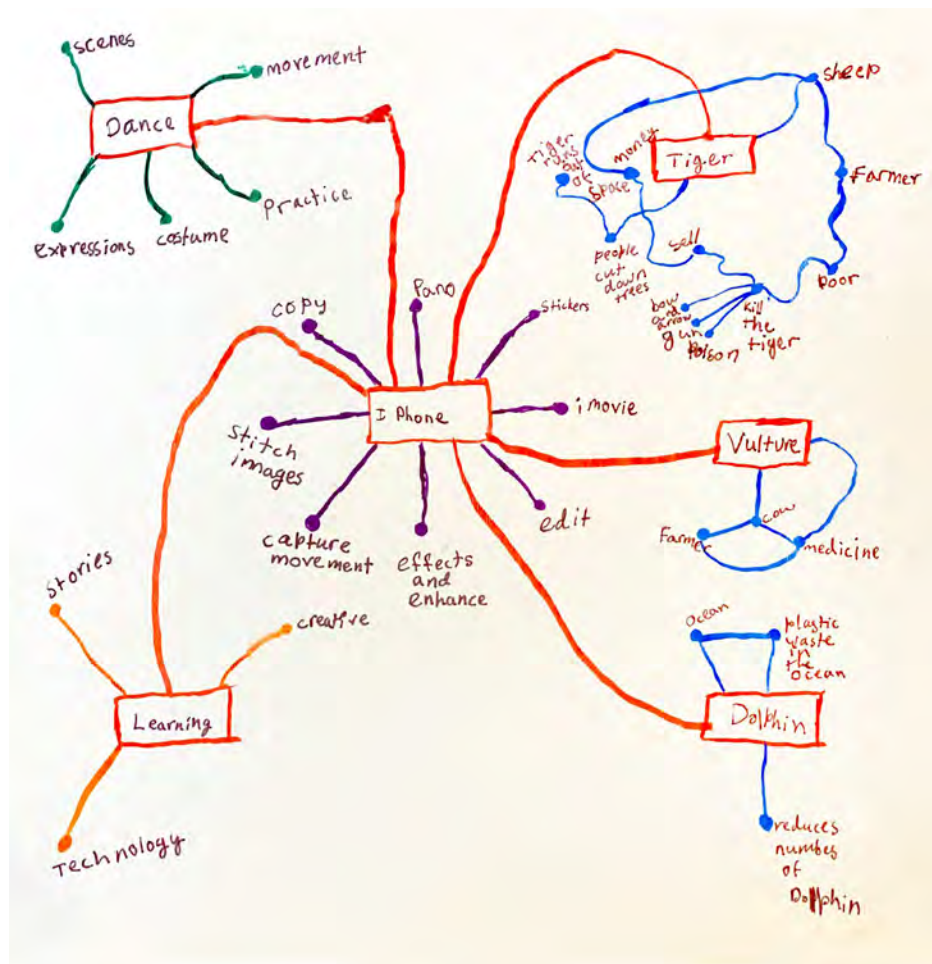 scenes
movement
Dance
Practice
expressions
costume
sheep
Tiger
money
Tiger
runs
out
of
space
Farmer
people
cut
down
trees
sell
Poor
bow
and
arrow
gun
Poison
kill
the
tiger
copy
Pano
Stickers
I Phone
imovie
stitch
images
capture
movement
effects
and
enhance
edit
Vulture
cow
Farmer
medicine
stories
creative
Learning
Technology
Ocean
plastic
waste
in
the
ocean
Dolphin
reduces
number
of
Dolphin